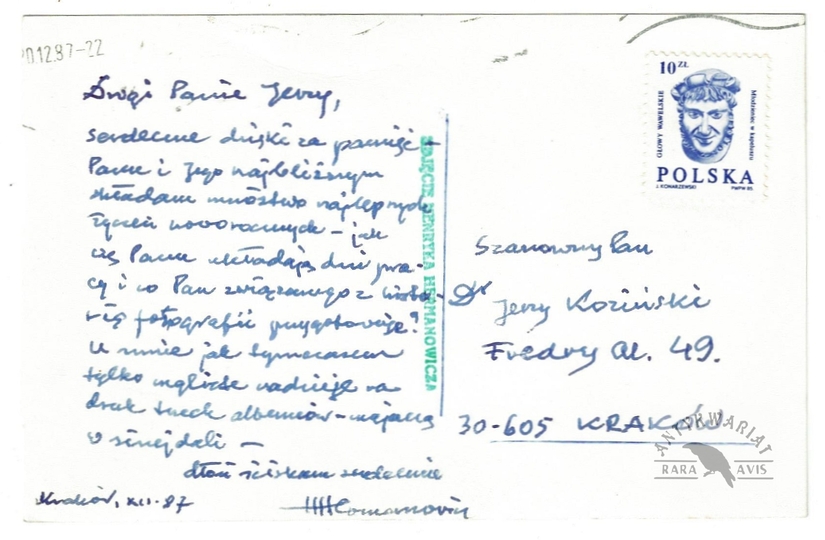 20.12.87-22
Drogi Panie Jerzy,
serdeczne dzięki za pamięć -
Panu i Jego najbliższym
składam mnóstwo najlepszych
życzeń noworocznych - jak
się Panu układają dni pra-
cy i co Pan związanego z histo-
rią fotografii przygotowuje?
U mnie jak tymczasem
tylko mgliste nadzieje na
druk trzech albumów - majaczą
w sinej dali -
dłoń ściskam serdecznie
Kraków, XII-87
HHermanowicz
ZDJĘCIE HENRYKA HERMANOWICZA
10 ZŁ
GŁOWY WAWELSKIE
Młodzieniec w kapeluszu
POLSKA
J. KONARZEWSKI PWPW 85.
Szanowny Pan
Dr Jerzy Koziński
Fredry 49.
30-605 KRAKÓW
ANTYKWARIAT
RARA AVIS